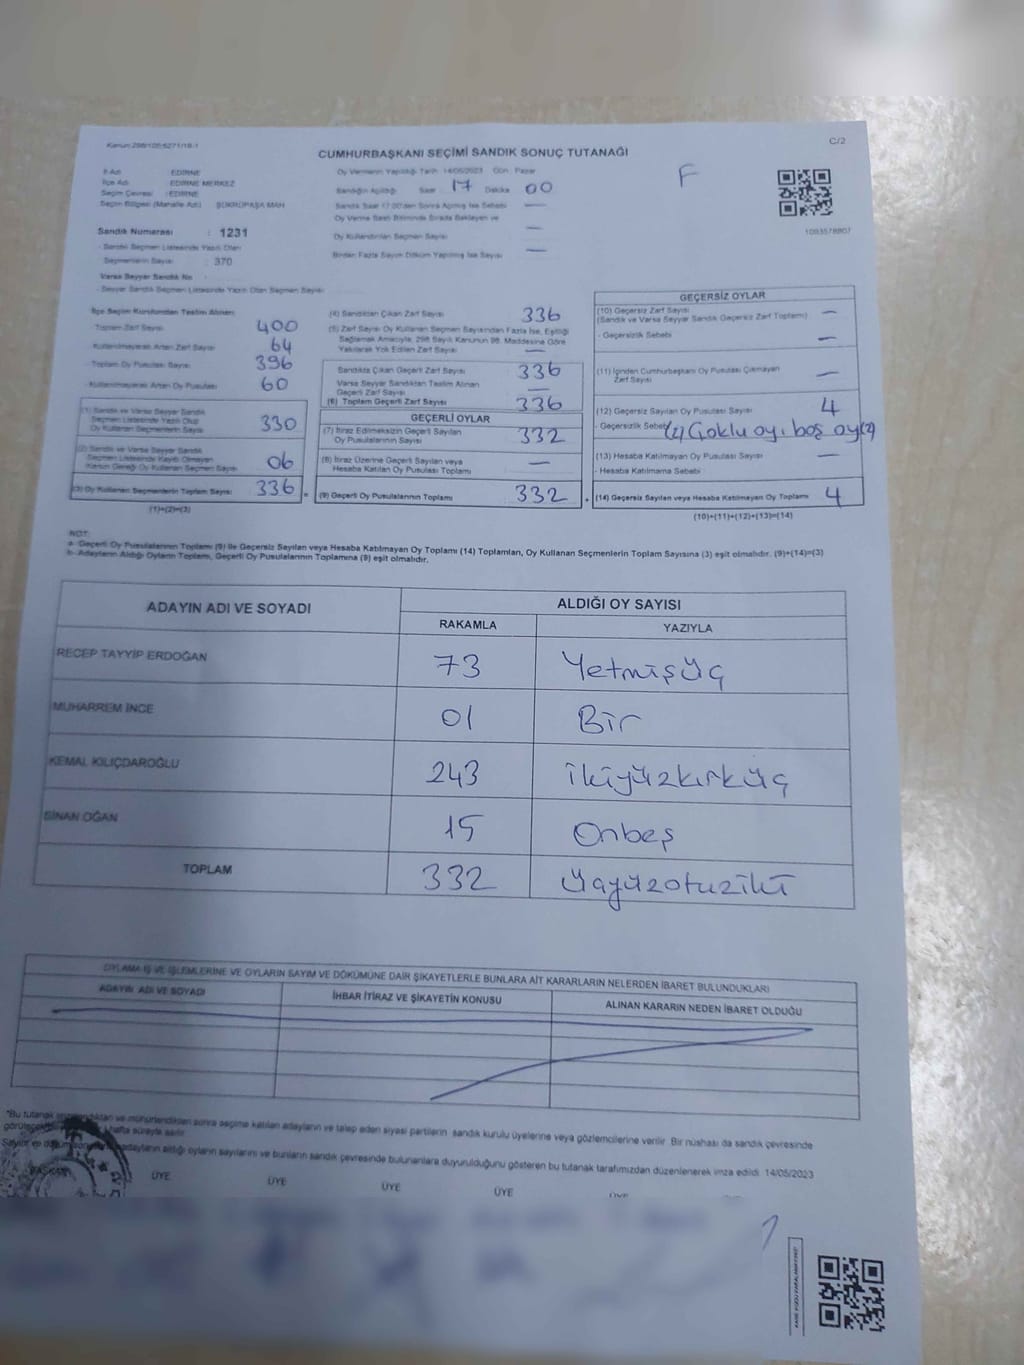 Kanun:298/105;6271/18-1
C/2
CUMHURBAŞKANI SEÇİMİ SANDIK SONUÇ TUTANAĞI
İl Adı : EDİRNE
İlçe Adı : EDİRNE MERKEZ
Seçim Çevresi : EDİRNE
Seçim Bölgesi (Mahalle Adı) : ŞÜKRÜPAŞA MAH
Sandık Numarası : 1231
- Sandık Seçmen Listesinde Yazılı Olan
Seçmenlerin Sayısı : 370
Varsa Seyyar Sandık No :
- Seyyar Sandık Seçmen Listesinde Yazılı Olan Seçmen Sayısı :
Oy Vermenin Yapıldığı Tarih :14/05/2023 Gün : Pazar
Sandığın Açıldığı Saat : 17 Dakika 00
Sandık Saat 17:00'den Sonra Açılmış İse Sebebi —
Oy Verme Saati Bitiminde Sırada Bekleyen ve
Oy Kullandırılan Seçmen Sayısı —
Birden Fazla Sayım Döküm Yapılmış İse Sayısı —
F
1093578807
İlçe Seçim Kurulundan Teslim Alınan
- Toplam Zarf Sayısı 400
- Kullanılmayarak Artan Zarf Sayısı 64
- Toplam Oy Pusulası Sayısı 396
- Kullanılmayarak Artan Oy Pusulası 60
(1) Sandık ve Varsa Seyyar Sandık
Seçmen Listesinde Yazılı Olup
Oy Kullanan Seçmenlerin Sayısı 330
(2) Sandık ve Varsa Seyyar Sandık
Seçmen Listesinde Kayıtlı Olmayan
Kanun Gereği Oy Kullanan Seçmen Sayısı 06
(3) Oy Kullanan Seçmenlerin Toplam Sayısı 336
(1)+(2)=(3)
(4) Sandıktan Çıkan Zarf Sayısı 336
(5) Zarf Sayısı Oy Kullanan Seçmen Sayısından Fazla İse, Eşitliği
Sağlamak Amacıyla, 298 Sayılı Kanunun 98. Maddesine Göre
Yakılarak Yok Edilen Zarf Sayısı —
Sandıkta Çıkan Geçerli Zarf Sayısı 336
Varsa Seyyar Sandıktan Teslim Alınan
Geçerli Zarf Sayısı —
(6) Toplam Geçerli Zarf Sayısı 336
GEÇERLİ OYLAR
(7) İtiraz Edilmeksizin Geçerli Sayılan
Oy Pusulalarının Sayısı 332
(8) İtiraz Üzerine Geçerli Sayılan veya
Hesaba Katılan Oy Pusulası Toplamı —
(9) Geçerli Oy Pusulalarının Toplamı 332
GEÇERSİZ OYLAR
(10) Geçersiz Zarf Sayısı —
(Sandık ve Varsa Seyyar Sandık Geçersiz Zarf Toplamı)
- Geçersizlik Sebebi —
(11) İçinden Cumhurbaşkanı Oy Pusulası Çıkmayan
Zarf Sayısı —
(12) Geçersiz Sayılan Oy Pusulası Sayısı 4
- Geçersizlik Sebebi (2) Çoklu oy, boş oy(2)
(13) Hesaba Katılmayan Oy Pusulası Sayısı —
- Hesaba Katılmama Sebebi
(14) Geçersiz Sayılan veya Hesaba Katılmayan Oy Toplamı 4
(10)+(11)+(12)+(13)=(14)
NOT:
a- Geçerli Oy Pusulalarının Toplamı (9) ile Geçersiz Sayılan veya Hesaba Katılmayan Oy Toplamı (14) Toplamları, Oy Kullanan Seçmenlerin Toplam Sayısına (3) eşit olmalıdır. (9)+(14)=(3)
b- Adayların Aldığı Oyların Toplamı, Geçerli Oy Pusulalarının Toplamına (9) eşit olmalıdır.
ADAYIN ADI VE SOYADI ALDIĞI OY SAYISI
RAKAMLA YAZIYLA
RECEP TAYYİP ERDOĞAN 73 Yetmişüç
MUHARREM İNCE 01 Bir
KEMAL KILIÇDAROĞLU 243 ikiyüzkırküç
SİNAN OĞAN 15 Onbeş
TOPLAM 332 üçyüzotuziki
OYLAMA İŞ VE İŞLEMLERİNE VE OYLARIN SAYIM VE DÖKÜMÜNE DAİR ŞİKAYETLERLE BUNLARA AİT KARARLARIN NELERDEN İBARET BULUNDUKLARI
ADAYIN ADI VE SOYADI İHBAR İTİRAZ VE ŞİKAYETİN KONUSU ALINAN KARARIN NEDEN İBARET OLDUĞU
*Bu tutanak imzalandıktan ve mühürlendikten sonra seçime katılan adayların ve talep eden siyasi partilerin sandık kurulu üyelerine veya gözlemcilerine verilir. Bir nüshası da sandık çevresinde
hafta süreyle asılır.
adayların aldığı oyların sayılarını ve bunların sandık çevresinde bulunanlara duyurulduğunu gösteren bu tutanak tarafımızdan düzenlenerek imza edildi. 14/05/2023
BAŞKAN ÜYE ÜYE ÜYE ÜYE